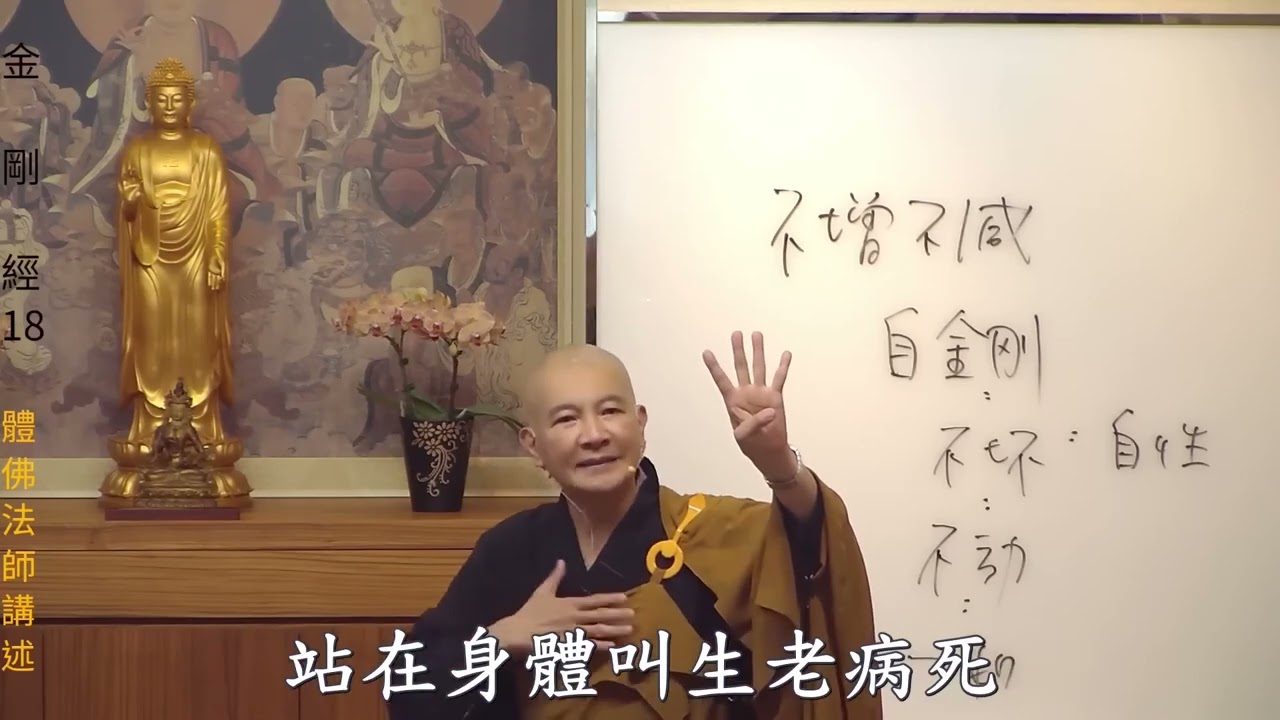 金剛經18
體佛法師講述
不增不減
自金刚
不坏：自性
不动
站在身體叫生老病死